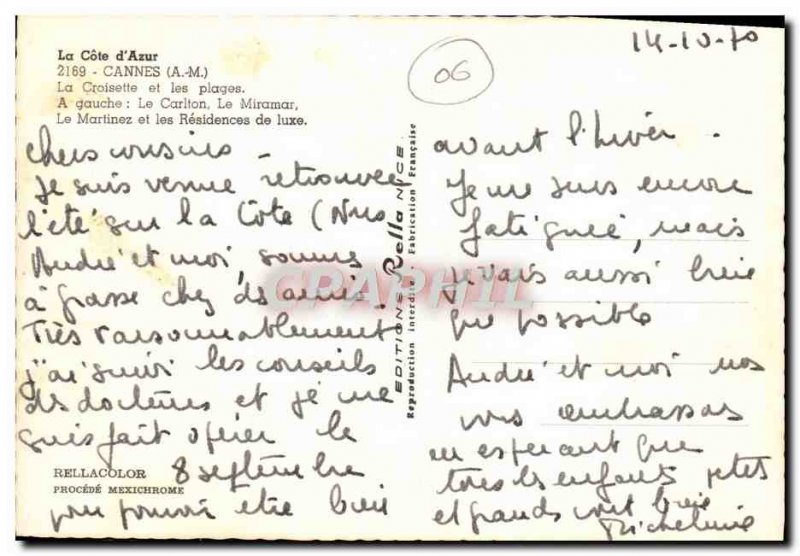 La Côte d'Azur
2169 - CANNES (A.-M.)
La Croisette et les plages.
A gauche : Le Carlton, Le Miramar,
Le Martinez et les Résidences de luxe.
chers cousins
Je suis venue retrouver
l'été sur la Côte (Nus
André et moi, sommes
à grasse chez des amis.
Très raisonnablement
j'ai suivi les conseils
des docteurs et je me
suis fait opérer le
8 septembre
pour pouvoir être bien
RELLACOLOR
PROCÉDÉ MEXICHROME
EDITIONS Rella NICE
Reproduction interdite Fabrication Française
CPAPHIL
14-10-70
06
avant l'hiver.
Je me sens encore
fatiguée, mais
je vais aussi bien
que possible
André et moi nos
vous embrassons
en espérant que
tous les enfants petits
et grands vont bien
Micheline